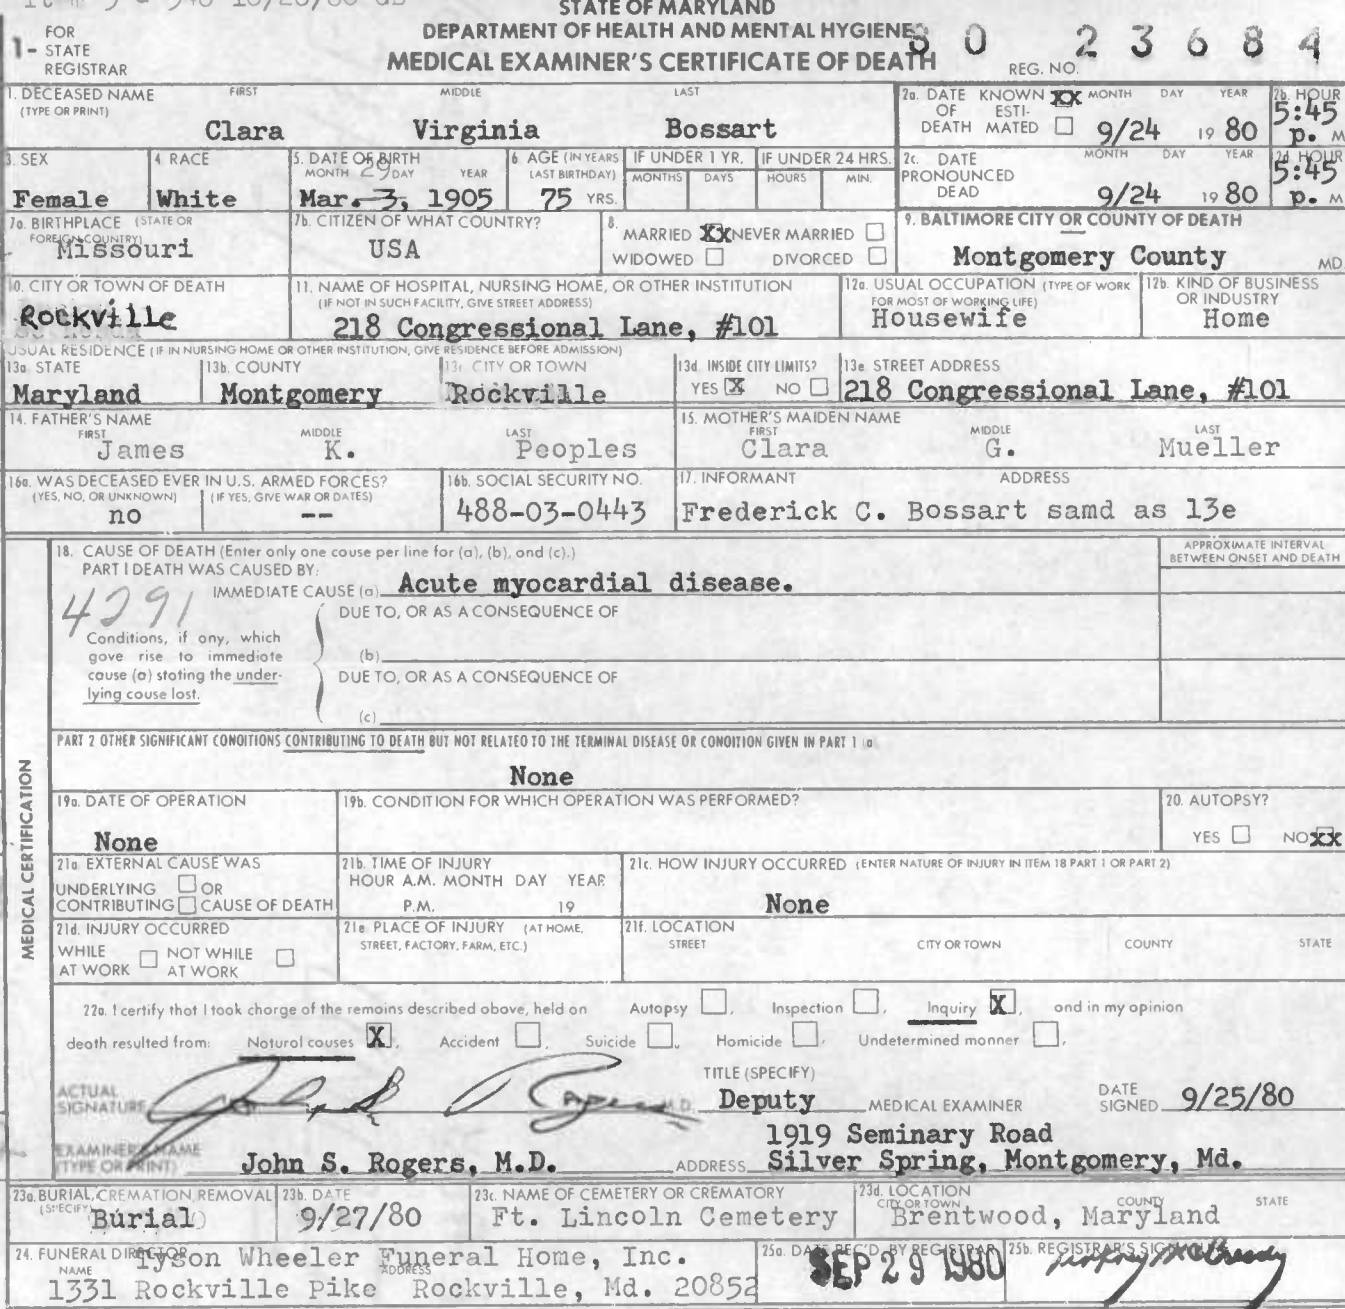 STATE OF MARYLAND
DEPARTMENT OF HEALTH AND MENTAL HYGIENE
MEDICAL EXAMINER'S CERTIFICATE OF DEATH
1- FOR STATE REGISTRAR
REG. NO. 80 23684
1. DECEASED NAME (TYPE OR PRINT) FIRST MIDDLE LAST
Clara Virginia Bossart
2a. DATE OF DEATH KNOWN XX ESTIMATED ☐ MONTH DAY YEAR 9/24 1980
2b. HOUR 5:45 p. M
3. SEX Female
4. RACE White
5. DATE OF BIRTH MONTH DAY YEAR
29
Mar. 3, 1905
6. AGE (IN YEARS LAST BIRTHDAY) 75 YRS.
IF UNDER 1 YR. MONTHS DAYS
IF UNDER 24 HRS. HOURS MIN.
2c. DATE PRONOUNCED DEAD MONTH DAY YEAR 9/24 1980
2d. HOUR 5:45 p. M
7a. BIRTHPLACE (STATE OR FOREIGN COUNTRY) Missouri
7b. CITIZEN OF WHAT COUNTRY? USA
8. MARRIED XX NEVER MARRIED ☐
WIDOWED ☐ DIVORCED ☐
9. BALTIMORE CITY OR COUNTY OF DEATH
Montgomery County MD
10. CITY OR TOWN OF DEATH
Rockville
11. NAME OF HOSPITAL, NURSING HOME, OR OTHER INSTITUTION
(IF NOT IN SUCH FACILITY, GIVE STREET ADDRESS)
218 Congressional Lane, #101
12a. USUAL OCCUPATION (TYPE OF WORK FOR MOST OF WORKING LIFE)
Housewife
12b. KIND OF BUSINESS OR INDUSTRY
Home
USUAL RESIDENCE (IF IN NURSING HOME OR OTHER INSTITUTION, GIVE RESIDENCE BEFORE ADMISSION)
13a. STATE Maryland
13b. COUNTY Montgomery
13c. CITY OR TOWN Rockville
13d. INSIDE CITY LIMITS? YES X NO ☐
13e. STREET ADDRESS 218 Congressional Lane, #101
14. FATHER'S NAME FIRST MIDDLE LAST
James K. Peoples
15. MOTHER'S MAIDEN NAME FIRST MIDDLE LAST
Clara G. Mueller
16a. WAS DECEASED EVER IN U.S. ARMED FORCES?
(YES, NO, OR UNKNOWN) (IF YES, GIVE WAR OR DATES)
no --
16b. SOCIAL SECURITY NO.
488-03-0443
17. INFORMANT ADDRESS
Frederick C. Bossart samd as 13e
MEDICAL CERTIFICATION
18. CAUSE OF DEATH (Enter only one cause per line for (a), (b), and (c).)
APPROXIMATE INTERVAL BETWEEN ONSET AND DEATH
PART I DEATH WAS CAUSED BY:
IMMEDIATE CAUSE (a) Acute myocardial disease.
4291
DUE TO, OR AS A CONSEQUENCE OF
Conditions, if any, which gave rise to immediate cause (a) stating the underlying cause last.
(b)
DUE TO, OR AS A CONSEQUENCE OF
(c)
PART 2 OTHER SIGNIFICANT CONDITIONS CONTRIBUTING TO DEATH BUT NOT RELATED TO THE TERMINAL DISEASE OR CONDITION GIVEN IN PART 1 (a)
None
19a. DATE OF OPERATION
None
19b. CONDITION FOR WHICH OPERATION WAS PERFORMED?
20. AUTOPSY?
YES ☐ NO XX
21a. EXTERNAL CAUSE WAS
UNDERLYING ☐ OR
CONTRIBUTING ☐ CAUSE OF DEATH
21b. TIME OF INJURY
HOUR A.M. MONTH DAY YEAR
P.M. 19
21c. HOW INJURY OCCURRED (ENTER NATURE OF INJURY IN ITEM 18 PART 1 OR PART 2)
None
21d. INJURY OCCURRED
WHILE AT WORK ☐ NOT WHILE AT WORK ☐
21e. PLACE OF INJURY (AT HOME, STREET, FACTORY, FARM, ETC.)
21f. LOCATION
STREET CITY OR TOWN COUNTY STATE
22a. I certify that I took charge of the remains described above, held on Autopsy ☐, Inspection ☐, Inquiry X, and in my opinion
death resulted from: Natural causes X, Accident ☐, Suicide ☐, Homicide ☐, Undetermined manner ☐.
ACTUAL SIGNATURE John S Rogers M.D.
TITLE (SPECIFY)
Deputy MEDICAL EXAMINER
DATE SIGNED 9/25/80
EXAMINER'S NAME (TYPE OR PRINT) John S. Rogers, M.D.
1919 Seminary Road
ADDRESS Silver Spring, Montgomery, Md.
23a. BURIAL, CREMATION, REMOVAL (SPECIFY) Burial
23b. DATE 9/27/80
23c. NAME OF CEMETERY OR CREMATORY
Ft. Lincoln Cemetery
23d. LOCATION CITY OR TOWN COUNTY STATE
Brentwood, Maryland
24. FUNERAL DIRECTOR
NAME ADDRESS
Tyson Wheeler Funeral Home, Inc.
1331 Rockville Pike Rockville, Md. 20852
25a. DATE REC'D. BY REGISTRAR
SEP 29 1980
25b. REGISTRAR'S SIGNATURE